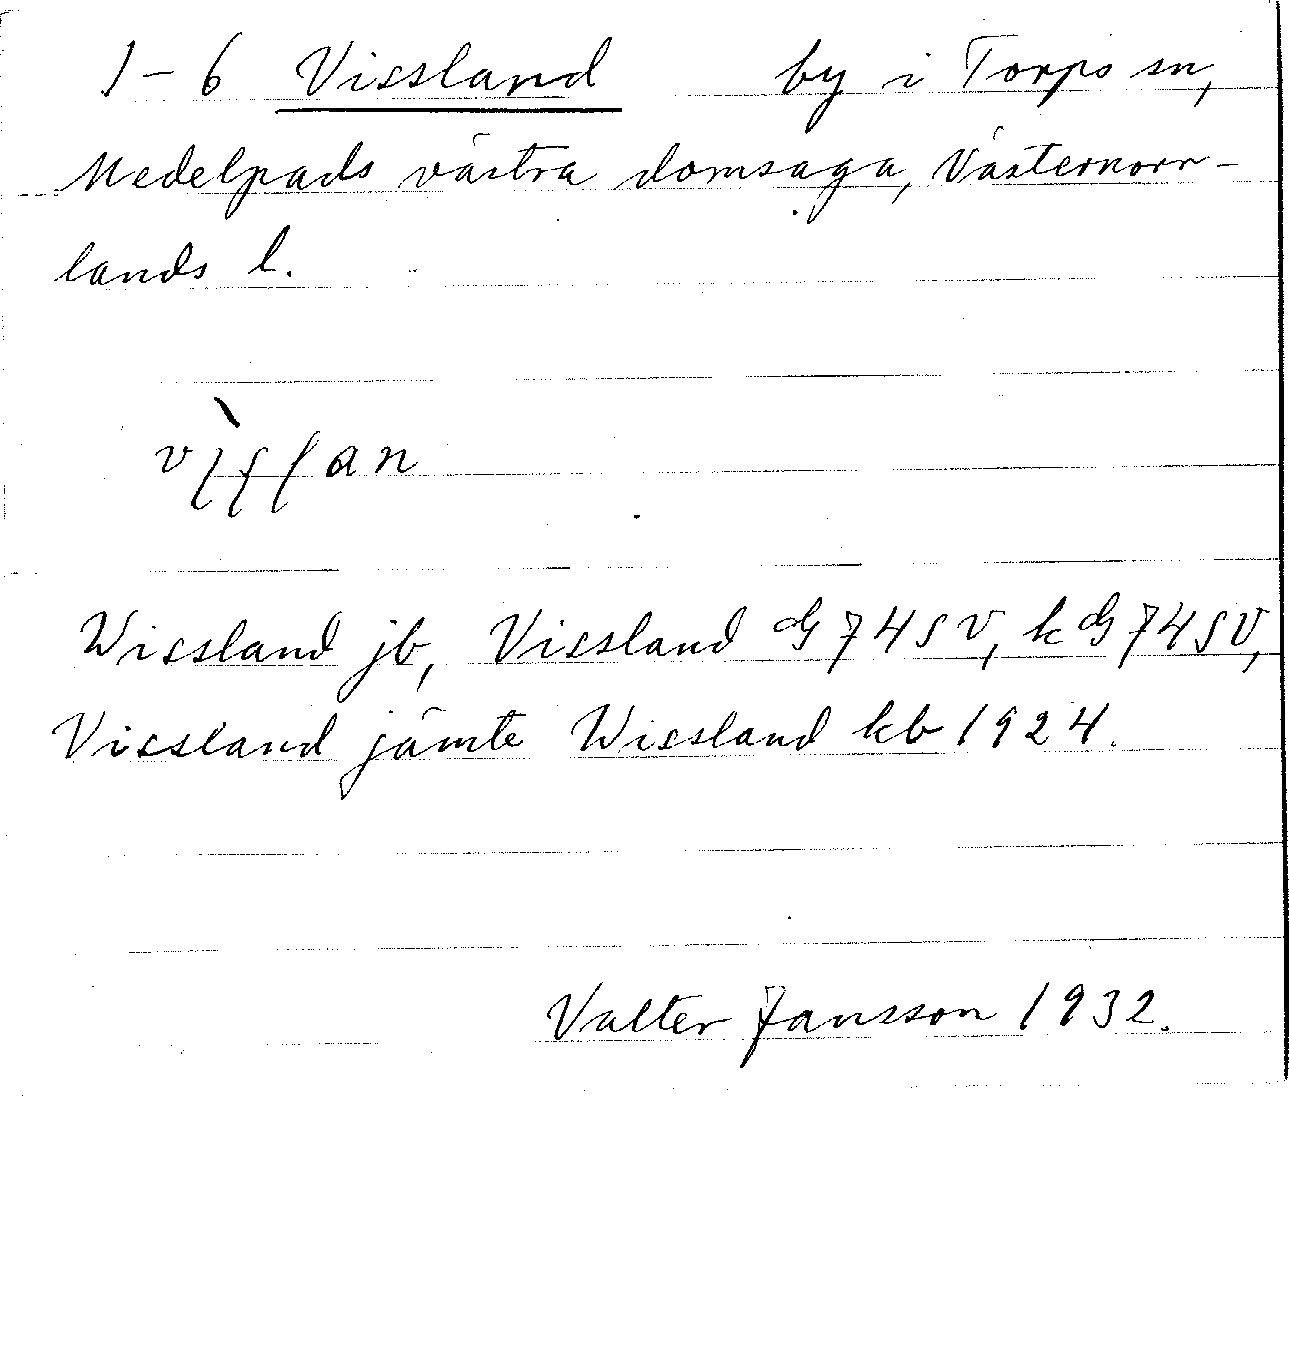 1-6 Vissland by i Torps sn,
Medelpads västra domsaga, Västernorr-
lands l.
Wissland jb, Vissland dG 74 SV, k dG 74 SV,
Vissland jämte Wissland kb 1924.
Valter Jansson 1932.